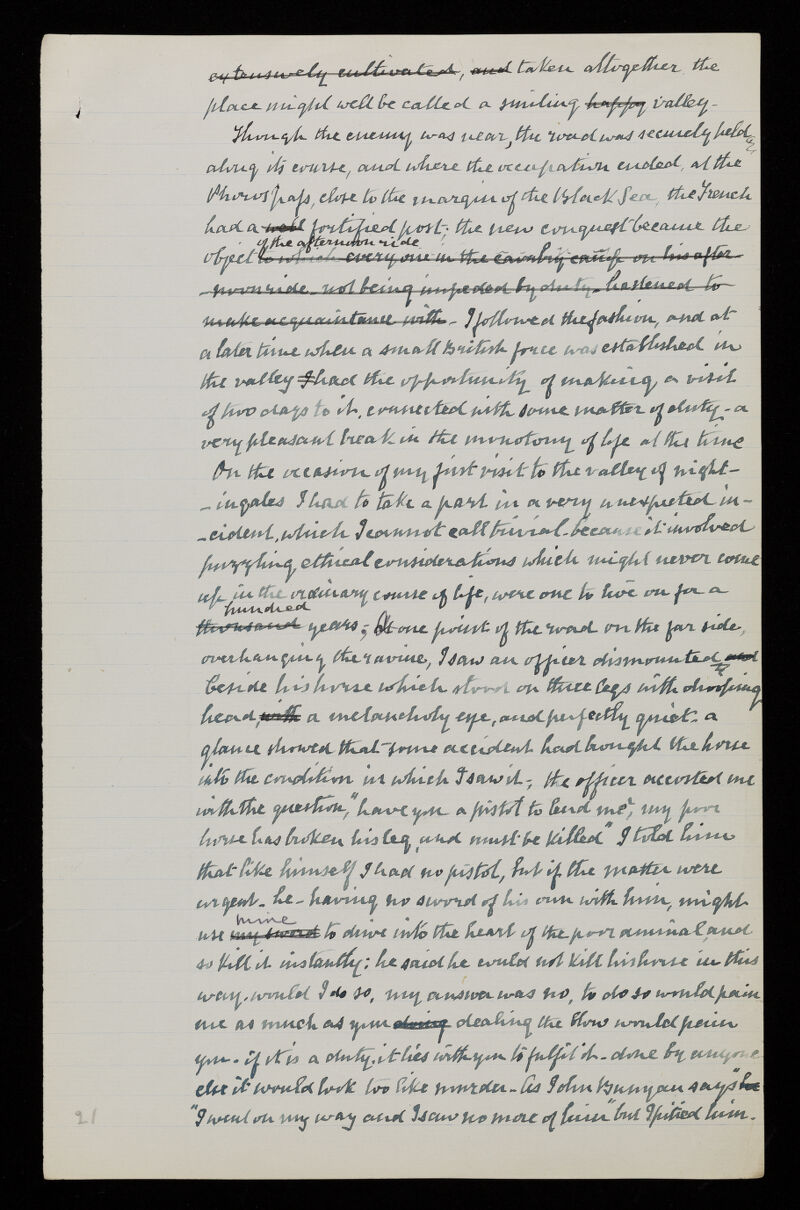 extensively cultivated, and taken altogether the
place might well be called a smiling happy valley-
Though the enemy was near, the road was securely held
along its course, and where the occupation ended, at the
Phoros pass, close to the margin of the Black Sea, the French
had a well fortified post; the new conquest became the
of the afternoon ride
object to which everyone in the cavalry camp on his after-
-noon ride not being impeded by duty- hastened to
make acquaintance with - I followed the fashion, and at
a later time when a small British force was established in
the valley I had the opportunity of making a visit
of two days to it, connected with some matter of duty - a
very pleasant break in the monotony of life at the time
On the occasion of my first visit to the valley of night-
-ingales I had to take a part in a very unexpected in-
-cident, which I cannot call trivial because it involved
puzzling ethical considerations which might never come
up in the ordinary course of life, were one to live on for a
hundred
thousand years; At one point of the road on the far side,
overhanging the ravine, I saw an officer dismounted and
beside his horse which stood on three legs with drooping
head, with a melancholy eye, and perfectly quiet: a
glance showed that some accident had brought the horse
into the condition in which I saw it; the officer accosted me
with the question, "have you a pistol to lend me? my poor
horse has broken his leg, and must be killed" I told him
that like himself I had no pistol, but if the matter were
urgent- he- having no sword of his own with him, might
mine
use my sword to drive into the heart of the poor animal, and
so kill it instantly; he said he could not kill his horse in this
way. would I do so, my answer was no, to do so would pain
me as much as your doing dealing the blow would pain
you- if it is a duty, it lies with you to fulfil it- done by anyone
else it would look too like murder- As John Bunyan says "he
"I went on my way and I saw no more of him" but I pitied him-
21